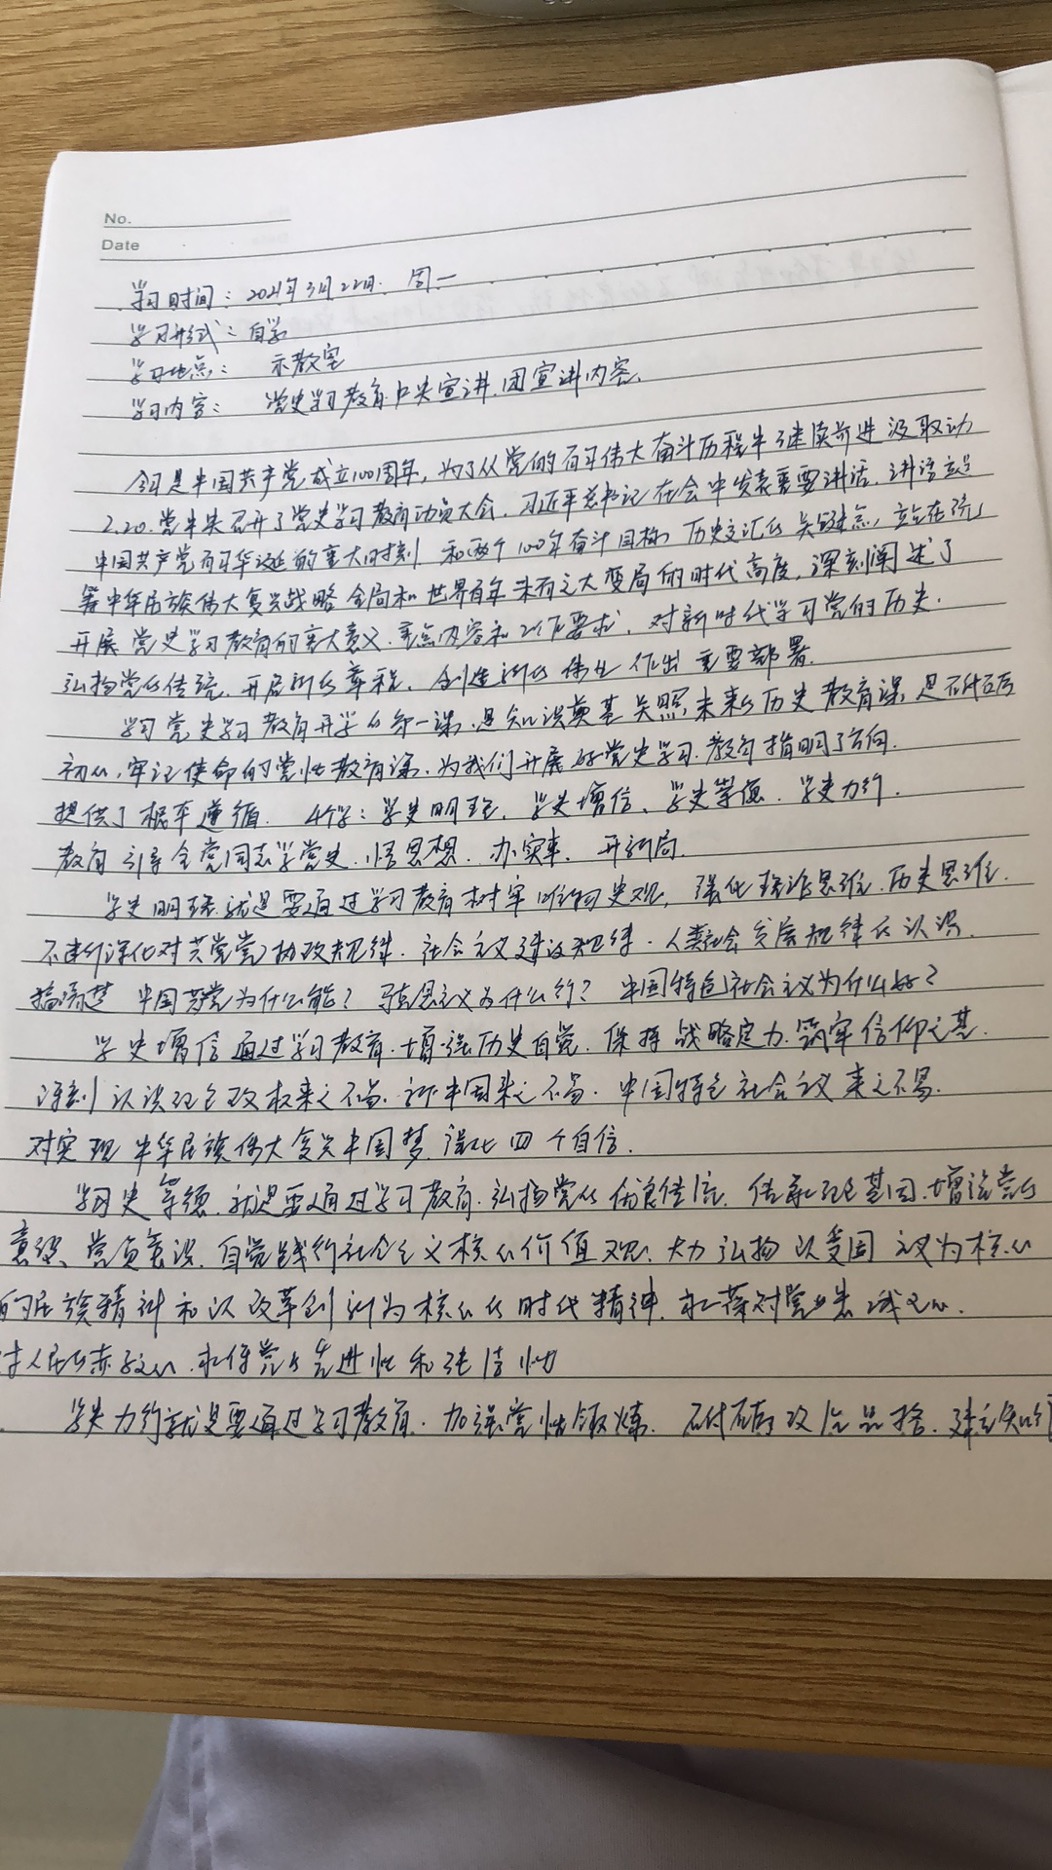 No.
Date
学习时间：2021年3月22日. 周一
学习形式：自学
学习地点： 示教室
学习内容： 党史学习教育中央宣讲.团宣讲内容.
今年是中国共产党成立100周年，为了从党的百年伟大奋斗历程中继续前进汲取动
2.20.党中央召开了党史学习教育动员大会.习近平总书记在会中发表重要讲话.讲话立足
中国共产党百年华诞的重大时刻 和两个100年奋斗目标 历史交汇的关键点，立足在统
筹中华民族伟大复兴战略全局和世界百年未有之大变局的时代高度，深刻阐述了
开展党史学习教育的重大意义.重点内容和工作要求，对新时代学习党的历史.
弘扬党的传统.开启新的章程、创造新的伟业 作出重要部署.
学习党史学习教育开学的第一课.是知识奠基 关照未来的历史教育课，是不忘
初心，牢记使命的党性教育课.为我们开展好党史学习.教育指明了方向.
提供了根本遵循. 4个学：学史明理、学史增信、学史崇德.学史力行.
教育引导全党同志学党史.悟思想.办实事.开新局.
学史明理就是要通过学习教育树牢唯物史观，强化理论思维.历史思维.
不断深化对共产党执政规律.社会主义建设规律.人类社会发展规律的认识.
搞清楚 中国共产党为什么能？马克思主义为什么行？中国特色社会主义为什么好？
学史增信通过学习教育.增强历史自觉.保持战略定力.筑牢信仰之基.
深刻认识红色政权来之不易.新中国来之不易.中国特色社会主义来之不易.
对实现中华民族伟大复兴中国梦.强化四个自信.
学习史崇德.就是要通过学习教育.弘扬党的优良传统.传承红色基因.增强党的
意识、党员意识.自觉践行社会主义核心价值观.大力弘扬以爱国主义为核心
的民族精神和以改革创新为核心的时代精神.永葆对党忠诚之心.
对人民的赤子之心.永保党的先进性和纯洁性
学史力行就是要通过学习教育.加强党性锻炼. 政治品格.建立知行